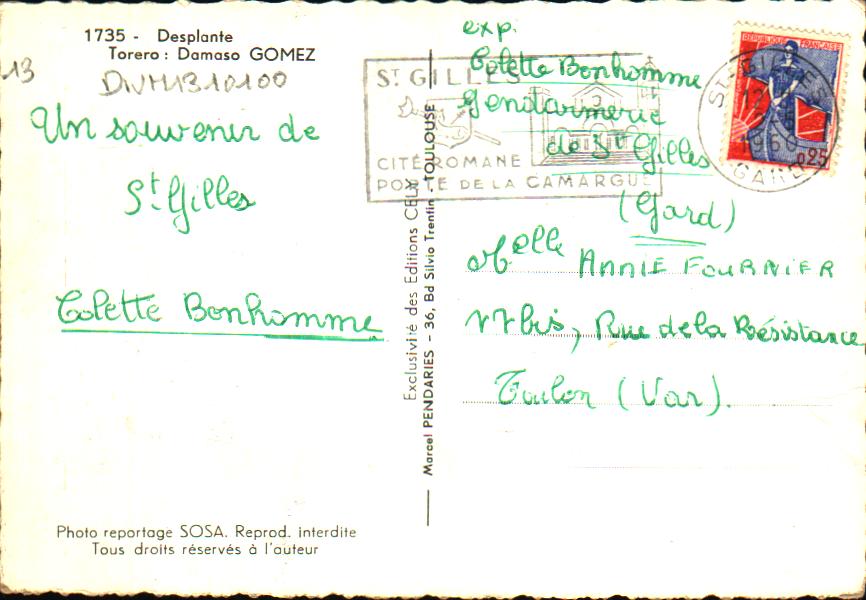 1735 - Desplante
Torero : Damaso GOMEZ
13
DIVH1310100
Un souvenir de
St. Gilles
Colette Bonhomme
Photo reportage SOSA. Reprod. interdite
Tous droits réservés à l'auteur
Exclusivité des Editions CELY
Marcel PENDARIES - 36, Bd Silvio Trentin - TOULOUSE
ST GILLES
CITÉ ROMANE
PORTE DE LA CAMARGUE
exp.
Colette Bonhomme
Gendarmerie
de St Gilles
(Gard)
Melle ANNIE FOURNIER
17 bis, Rue de la Résistance
Toulon (Var).
REPUBLIQUE FRANÇAISE
0,25
ST-GILLES
1960
GARD